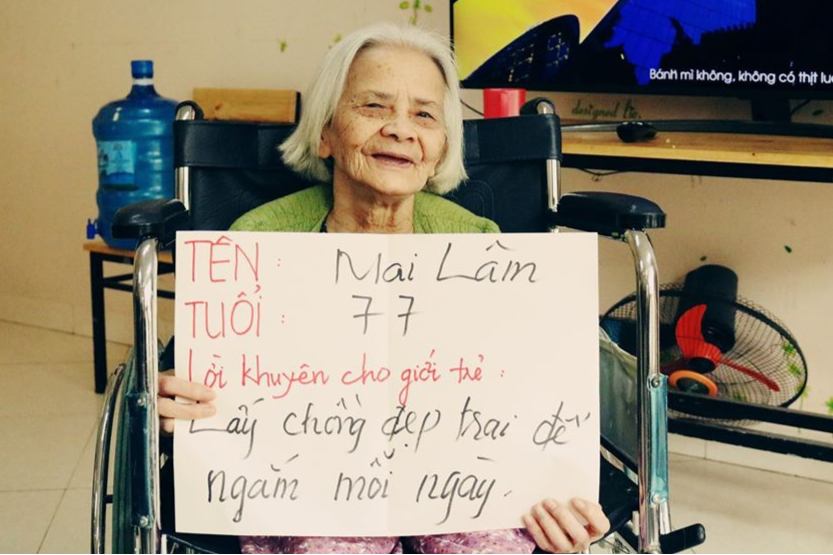 Bánh mì không, không có thịt
designed
TÊN : Mai Lâm
TUỔI : 77
Lời khuyên cho giới trẻ :
Lấy chồng đẹp trai để
ngắm mỗi ngày.